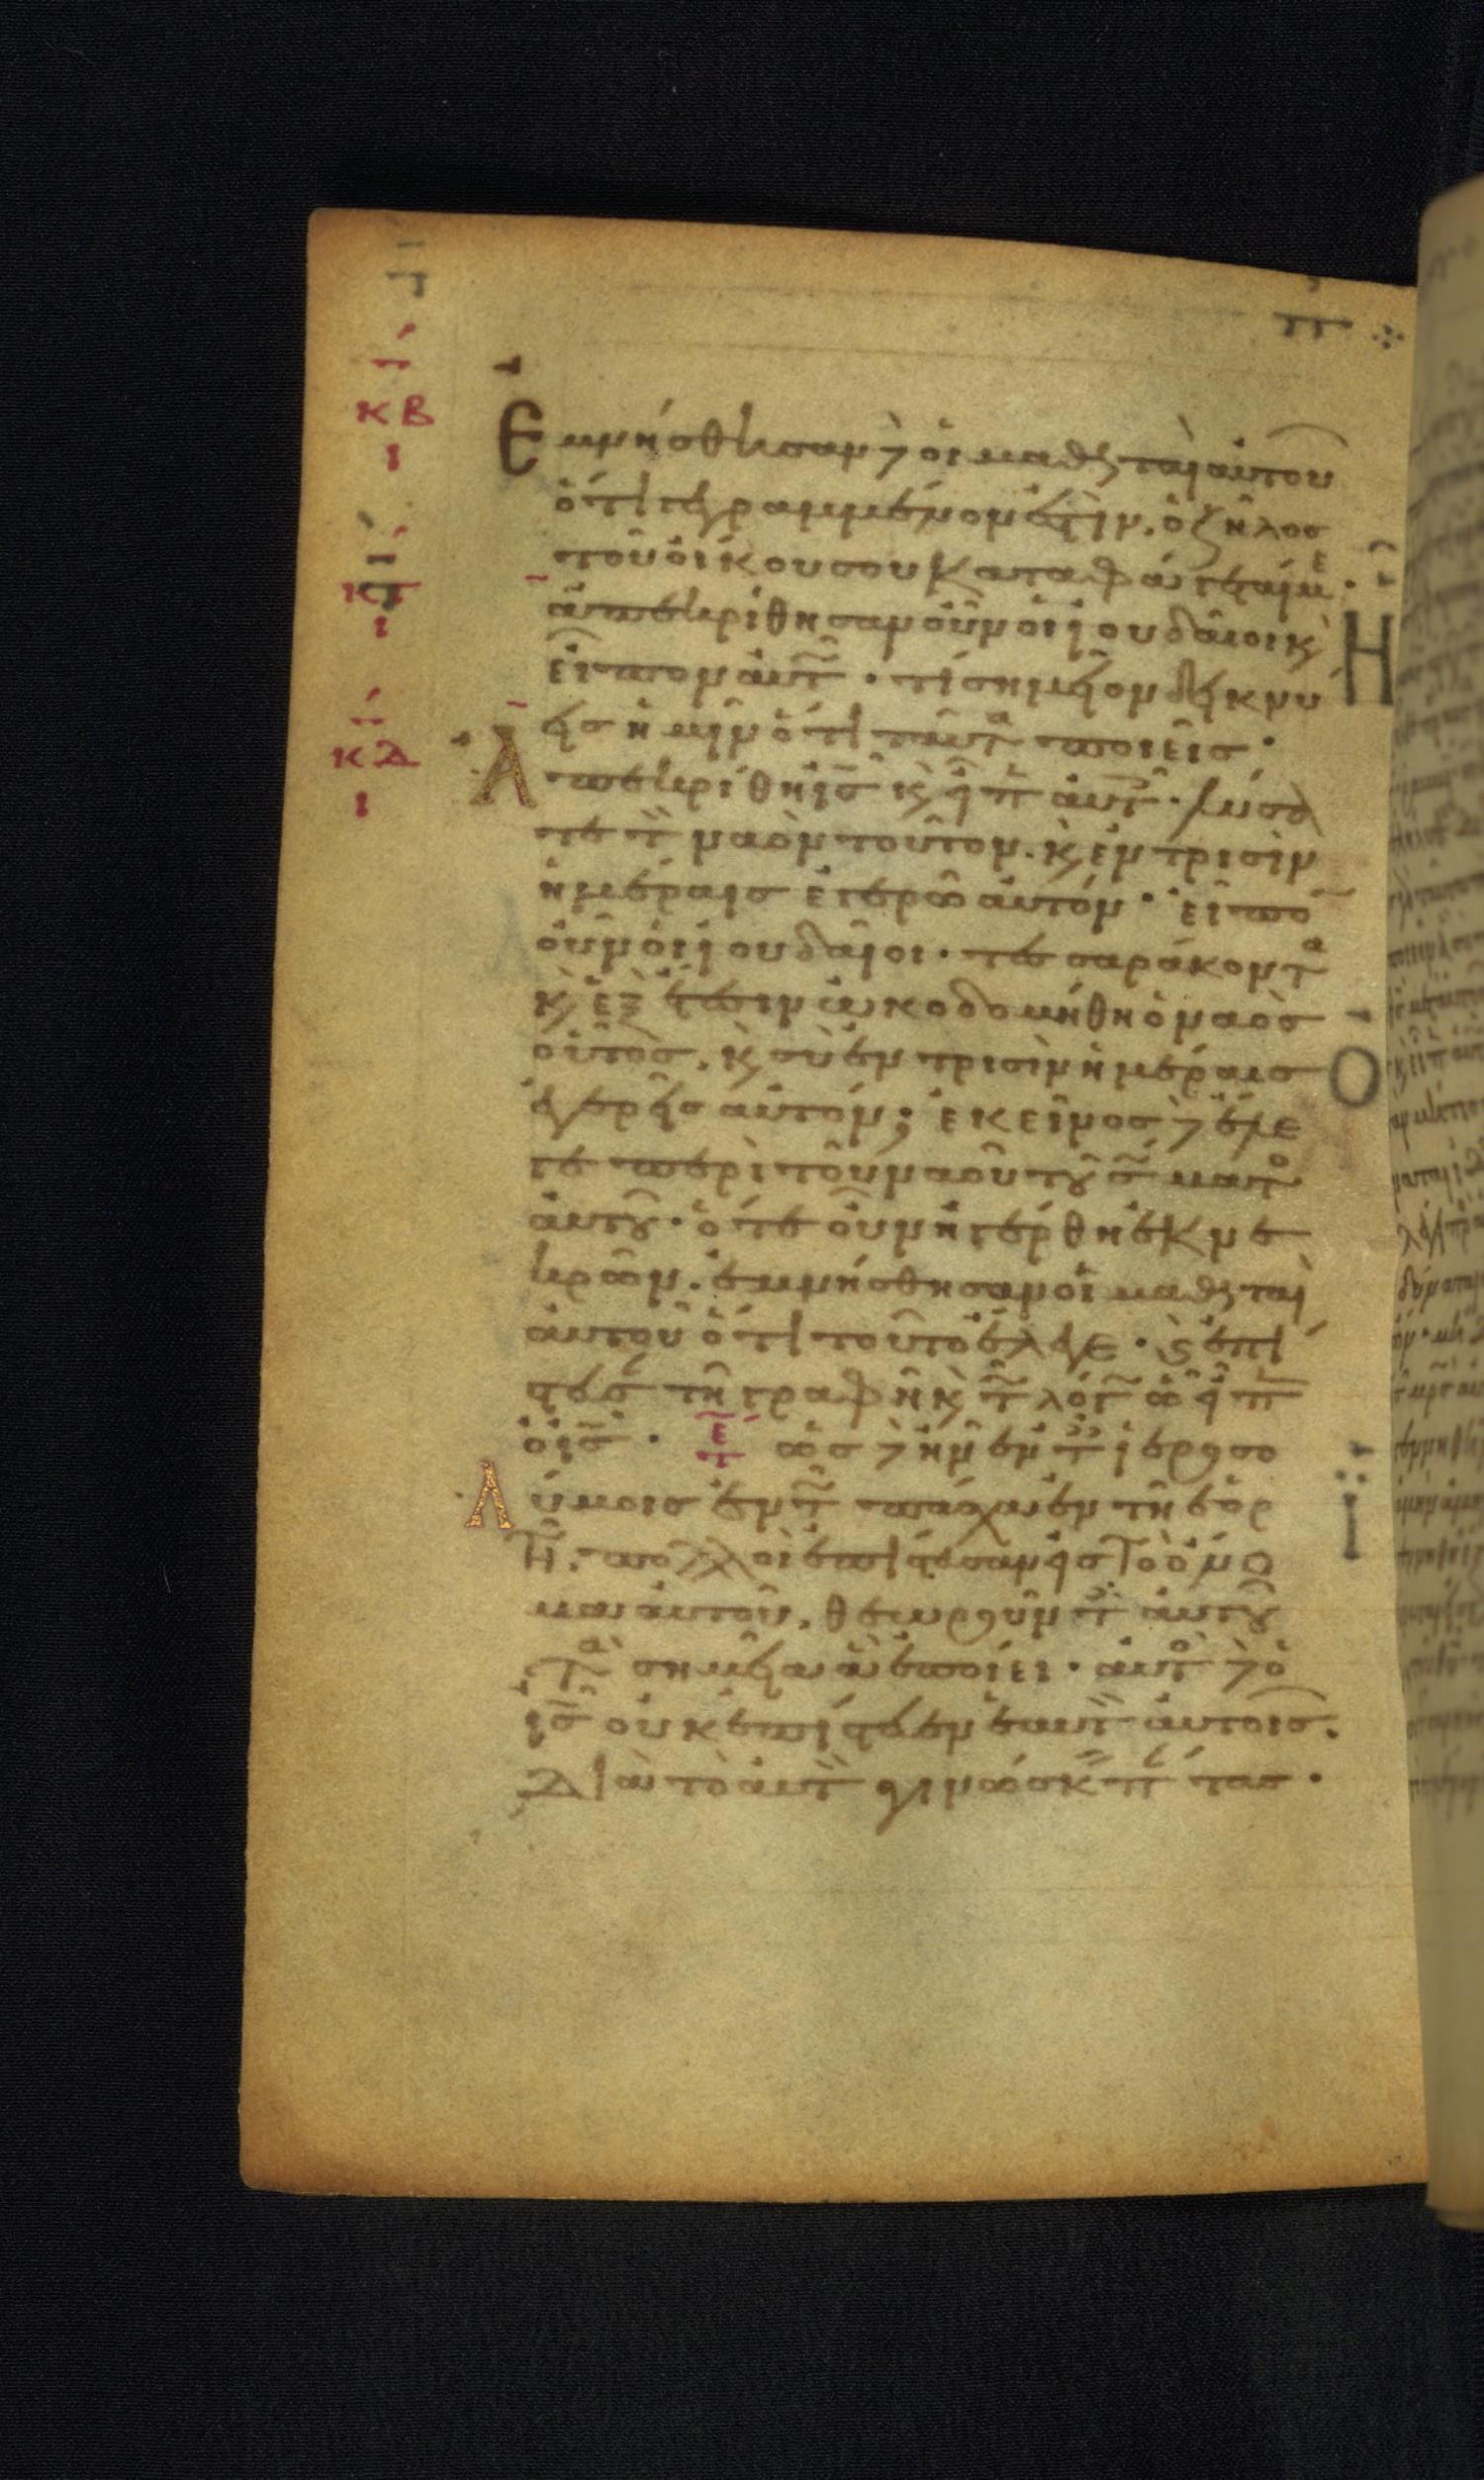 κβ
ι
Ἐμνήσθησαν δὲ οἱ μαθηταὶ αὐτοῦ
ὅτι γεγραμμένον ἐστὶν. ὁ ζῆλος
τοῦ οἴκου σου καταφάγεταί με.
κγ
ι
ἀπεκρίθησαν οὖν οἱ ἰουδαῖοι κ̀
εἶπον αὐτῶ · τί σημεῖον δεικνύ
εις ἡμῖν ὅτι ταῦτα ποιεῖς ·
κδ
ι
Ἀπεκρίθη ἰς̄ κ̀ εἶπ αὐτοῖς · λύσα
τε τὸν ναὸν τοῦτον. κ̀ ἐν τρισὶν
ἡμέραις ἐγερῶ αὐτόν · εἶπο
οὖν οἱ ἰουδαῖοι · τεσσαράκοντα
κ̀ ἓξ ἔτεσιν ὠκοδομήθη ὁ ναὸς
οὗτος. κ̀ σὺ ἐν τρισὶν ἡμέραις
ἐγερεῖς αὐτόν; ἐκεῖνος δὲ ἔλε
γε περὶ τοῦ ναοῦ τοῦ σώματο
αὐτοῦ · ὅτε οὖν ἠγέρθη ἐκ νε
κρῶν. ἐμνήσθησαν οἱ μαθηταὶ
αὐτοῦ ὅτι τοῦτο ἔλεγε · κ̀ ἐπί
στευσ τῆ γραφῆ κ̀ τῶ λόγω ὧ εἶπ
ὁ ἰς̄ · ὡς δὲ ἦν ἐν τοῖς ἱεροσο
λύμοις ἐν τῶ πάσχα ἐν τῆ ἑορ
τῆ. πολλοὶ ἐπίστευσαν εἰς τὸ ὄνο
μα αὐτοῦ. θεωροῦντες αὐτοῦ
τὰ σημεῖα ἃ ἐποίει · αὐτὸς δὲ ὁ
ἰς̄ οὐκ ἐπίστευεν ἑαυτὸν αὐτοῖς.
Διὰ τὸ αὐτὸν γινώσκ πάντας ·